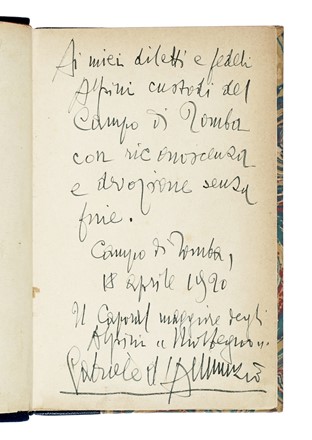 Ai miei diletti e fedeli
Alpini custodi del
Campo di Romba
con riconoscenza
e devozione senza
fine.
Campo di Romba,
18 aprile 1920
Il Caporal maggiore degli
Alpini "Morbegno".
Gabriele d'Annunzio